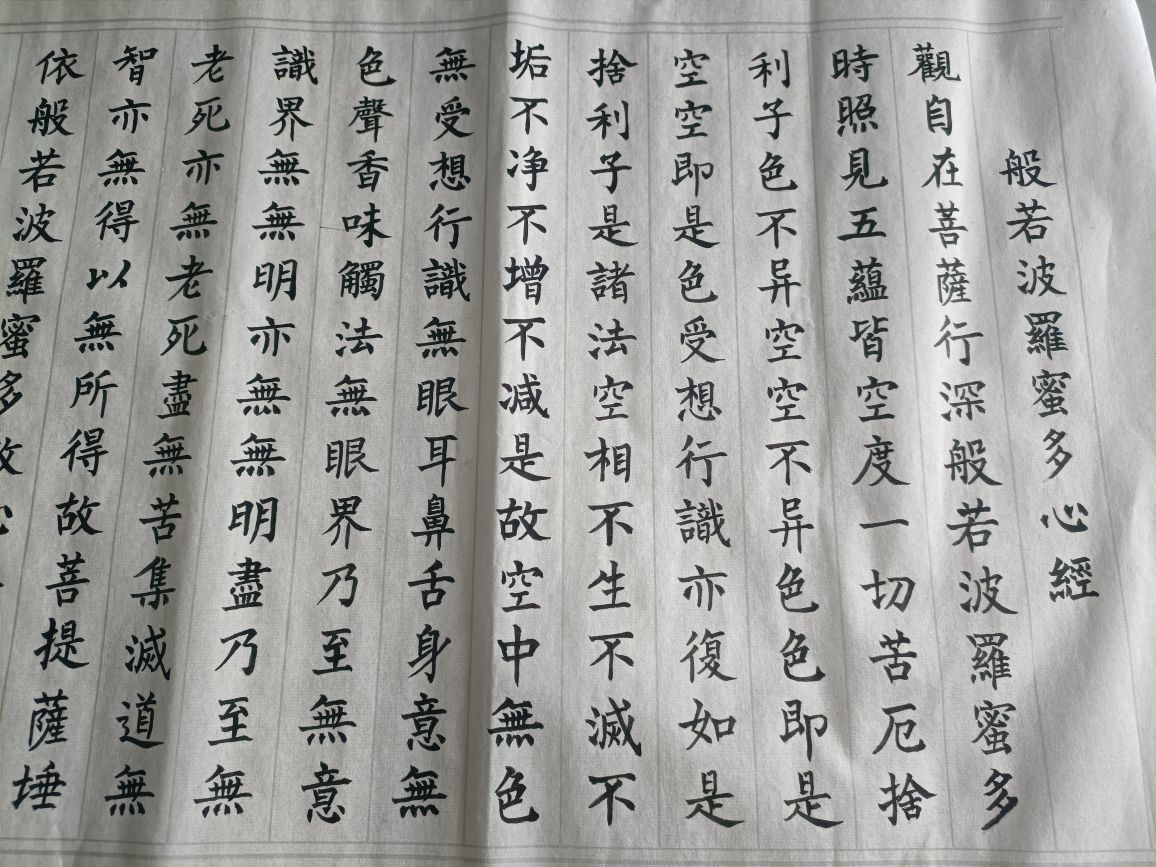 般若波羅蜜多心經
觀自在菩薩行深般若波羅蜜多
時照見五蘊皆空度一切苦厄捨
利子色不异空空不异色色即是
空空即是色受想行識亦復如是
捨利子是諸法空相不生不滅不
垢不净不增不减是故空中無色
無受想行識無眼耳鼻舌身意無
色聲香味觸法無眼界乃至無意
識界無無明亦無無明盡乃至無
老死亦無老死盡無苦集滅道無
智亦無得以無所得故菩提薩埵
依般若波羅蜜多故心